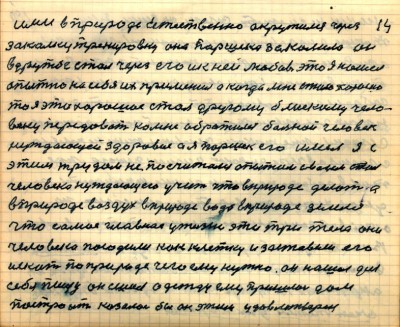 ими в природе естественно окрутился через 14
закалку тренировку она Паршека закалила он
в дружбе стал через его к ней любовь, это я нашел
опытно на себя их применил а когда мне стало хорошо
то я это хорошое стал другому близкому чело-
веку передовать ко мне обратился больной человек
нуждающейся здоровья а я Паршек его имел я с
этим трудом не посчитался опытом своим стал
человека нуждающего учить что в природе делать, а
в природе воздух в природе вода в природе земля
что самое главная у жизни эти три тела они
человека породили как клетку и заставили его
искать по природе чего ему нужно. он нашел для
себя пищу он сшил одежду ему пришлось дом
построить казалось бы он этим удовлетворен